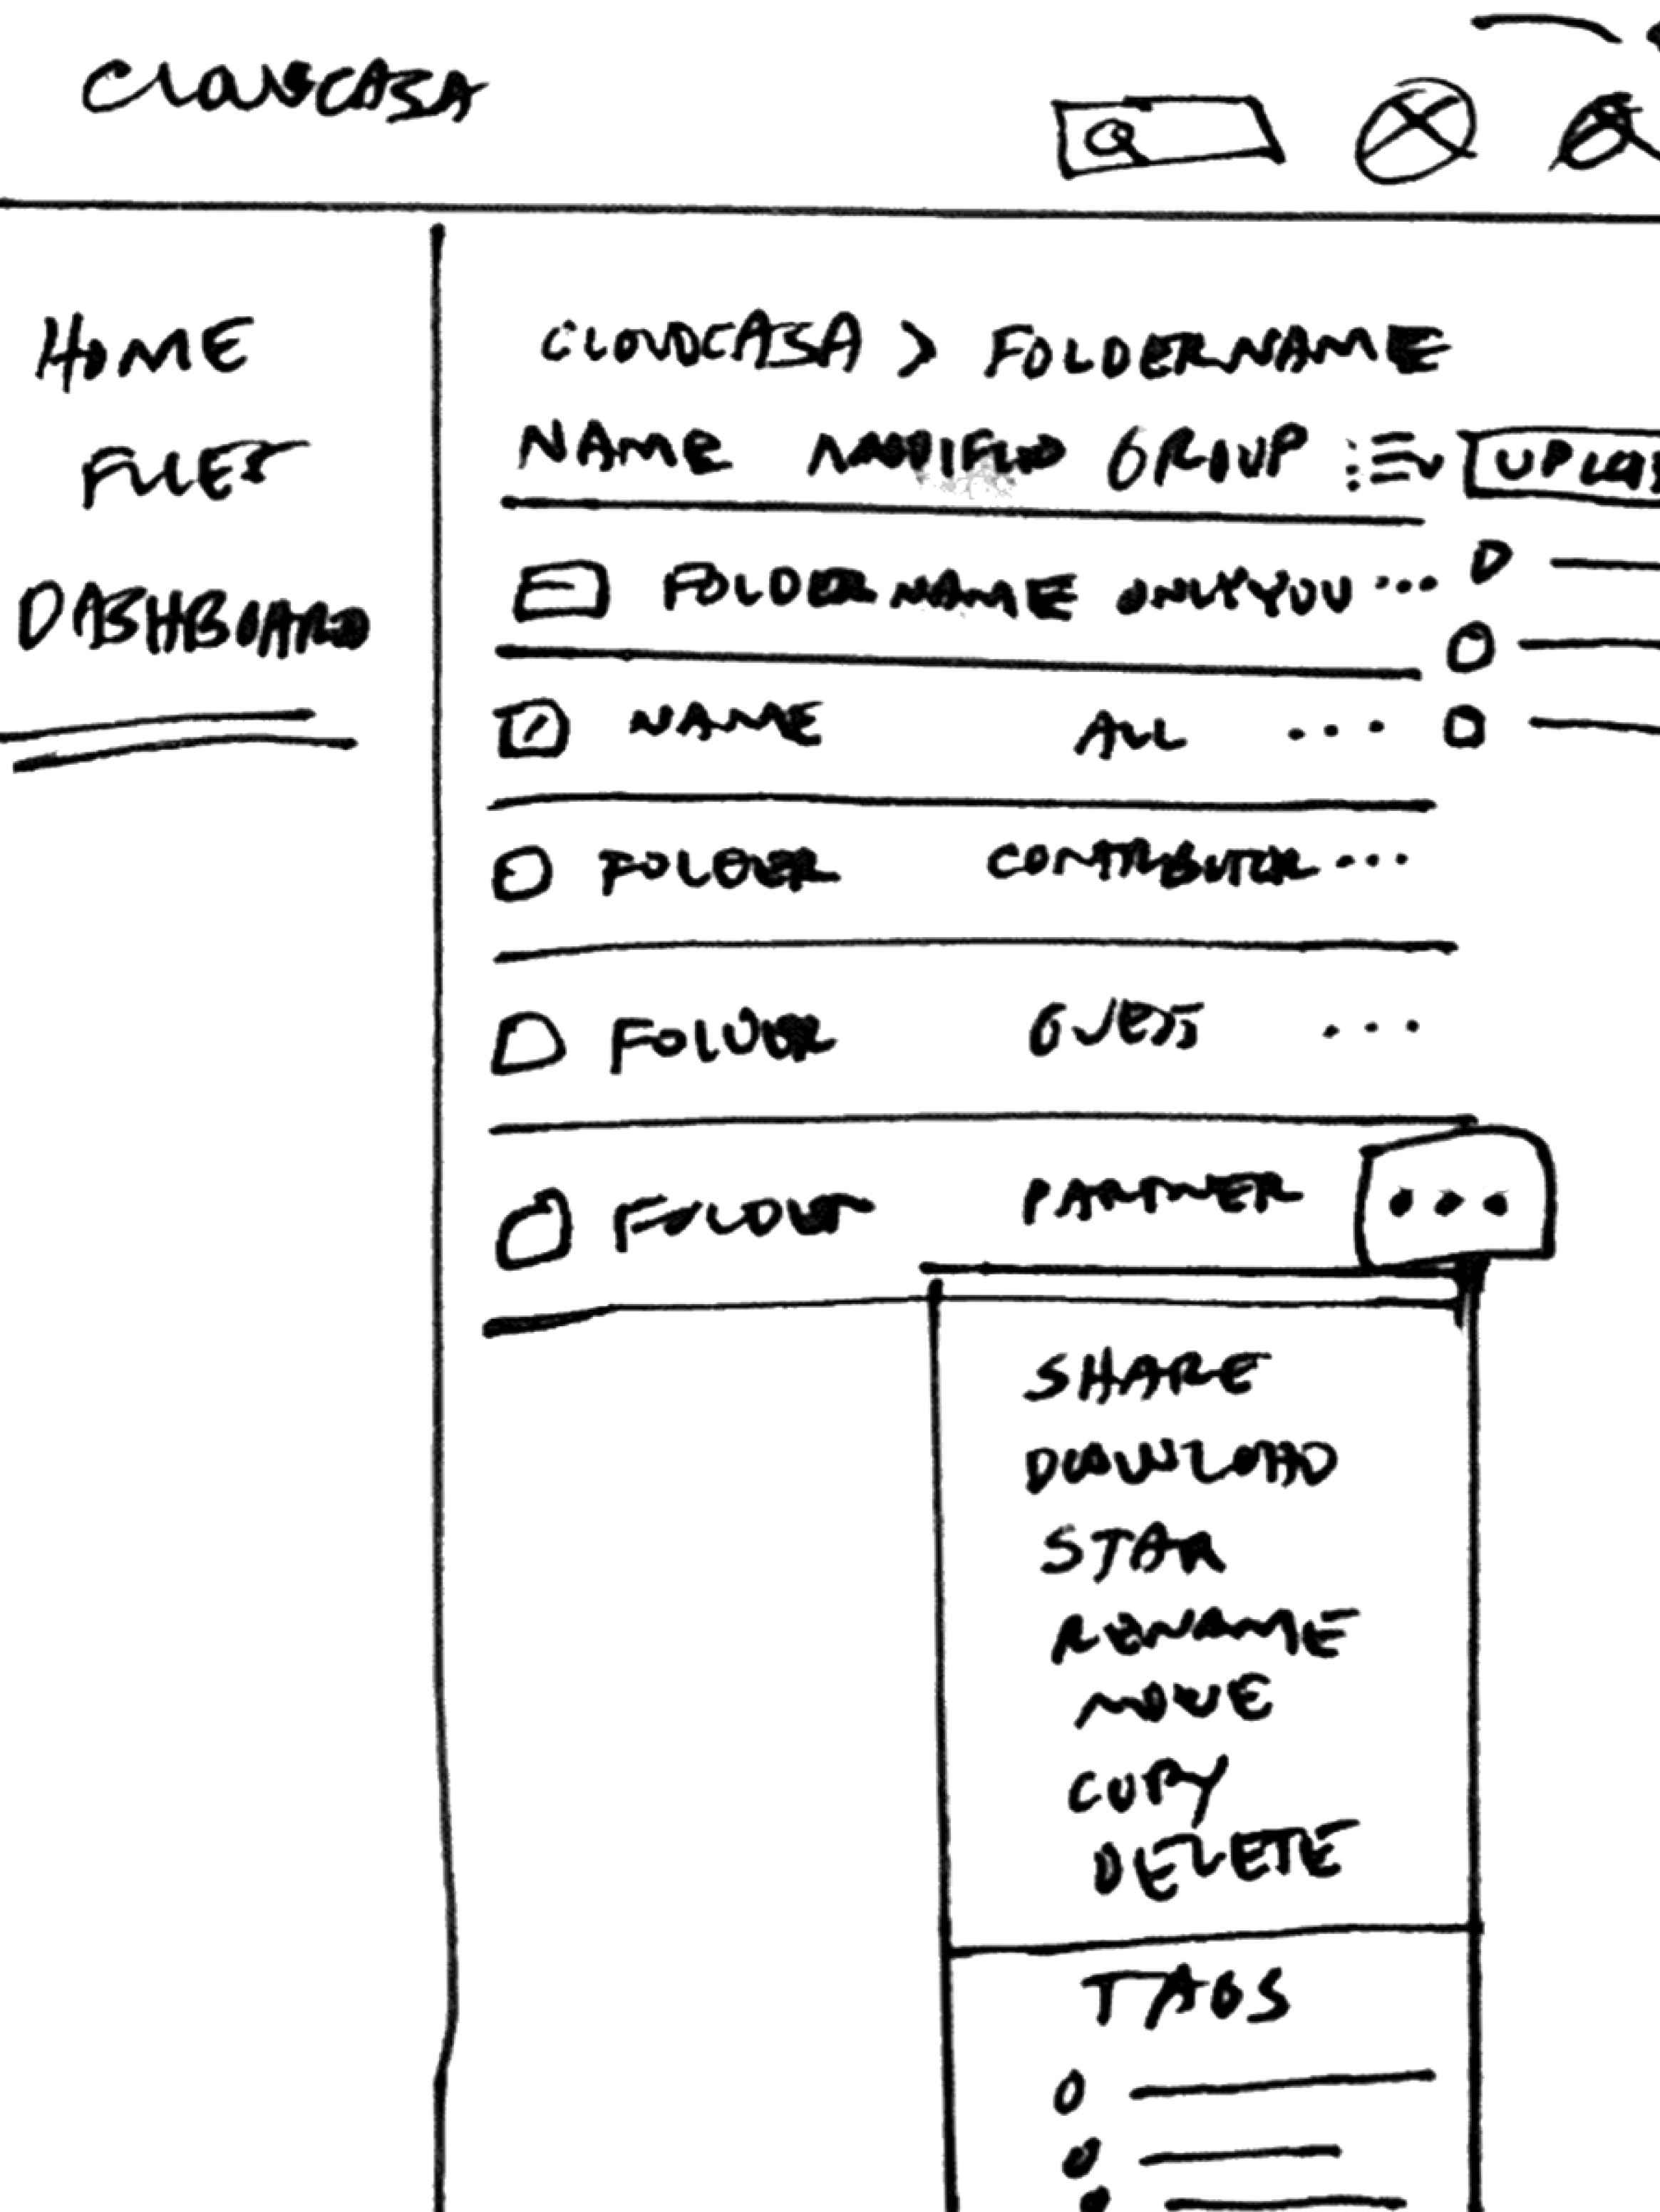 CLOUDCASA
HOME
FILES
DASHBOARD
CLOUDCASA > FOLDERNAME
NAME MODIFIED GROUP UPLOA
FOLDER NAME ONLY YOU ...
NAME ALL ...
FOLDER CONTRIBUTOR ...
FOLDER GUEST ...
FOLDER PARTNER ...
SHARE
DOWNLOAD
STAR
RENAME
MOVE
COPY
DELETE
TAGS